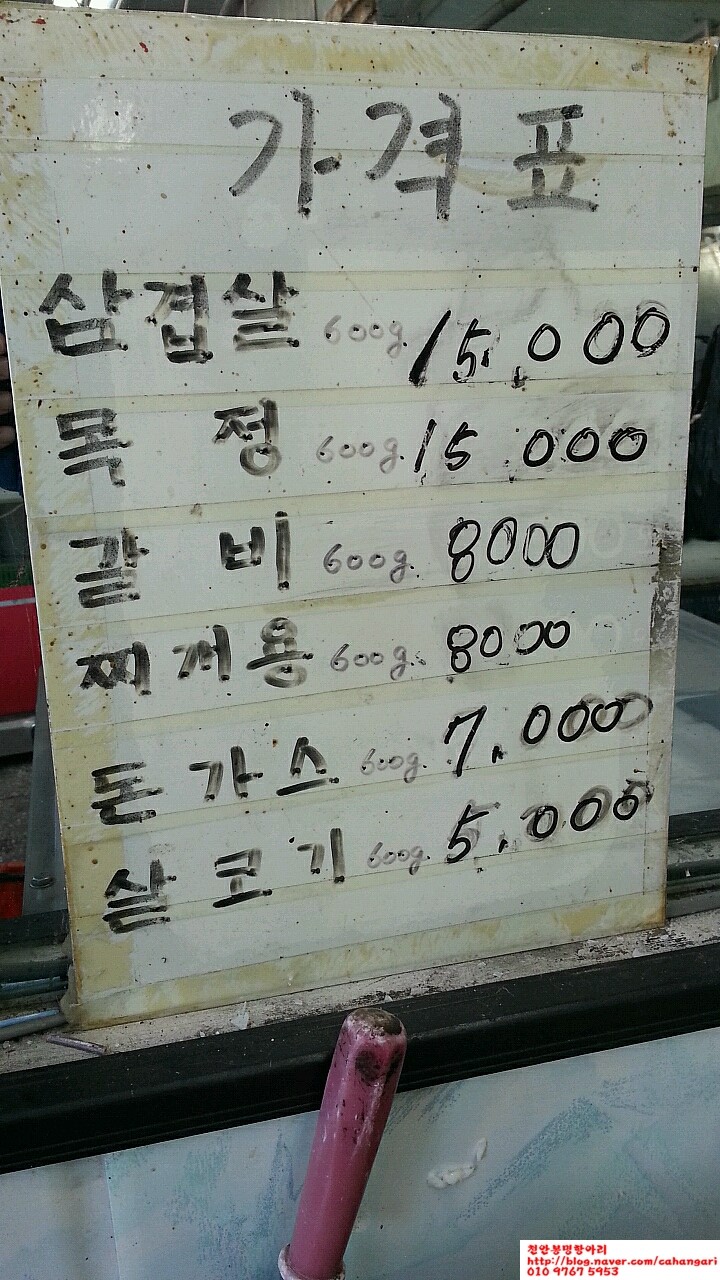 가격표
삼겹살 600g. 15,000
목정 600g. 15 000
갈비 600g. 8000
찌게용 600g. 8000
돈가스 600g. 7,000
살코기 600g. 5,000
천안봉명항아리
http://blog.naver.com/cahangari
010 9767 5953